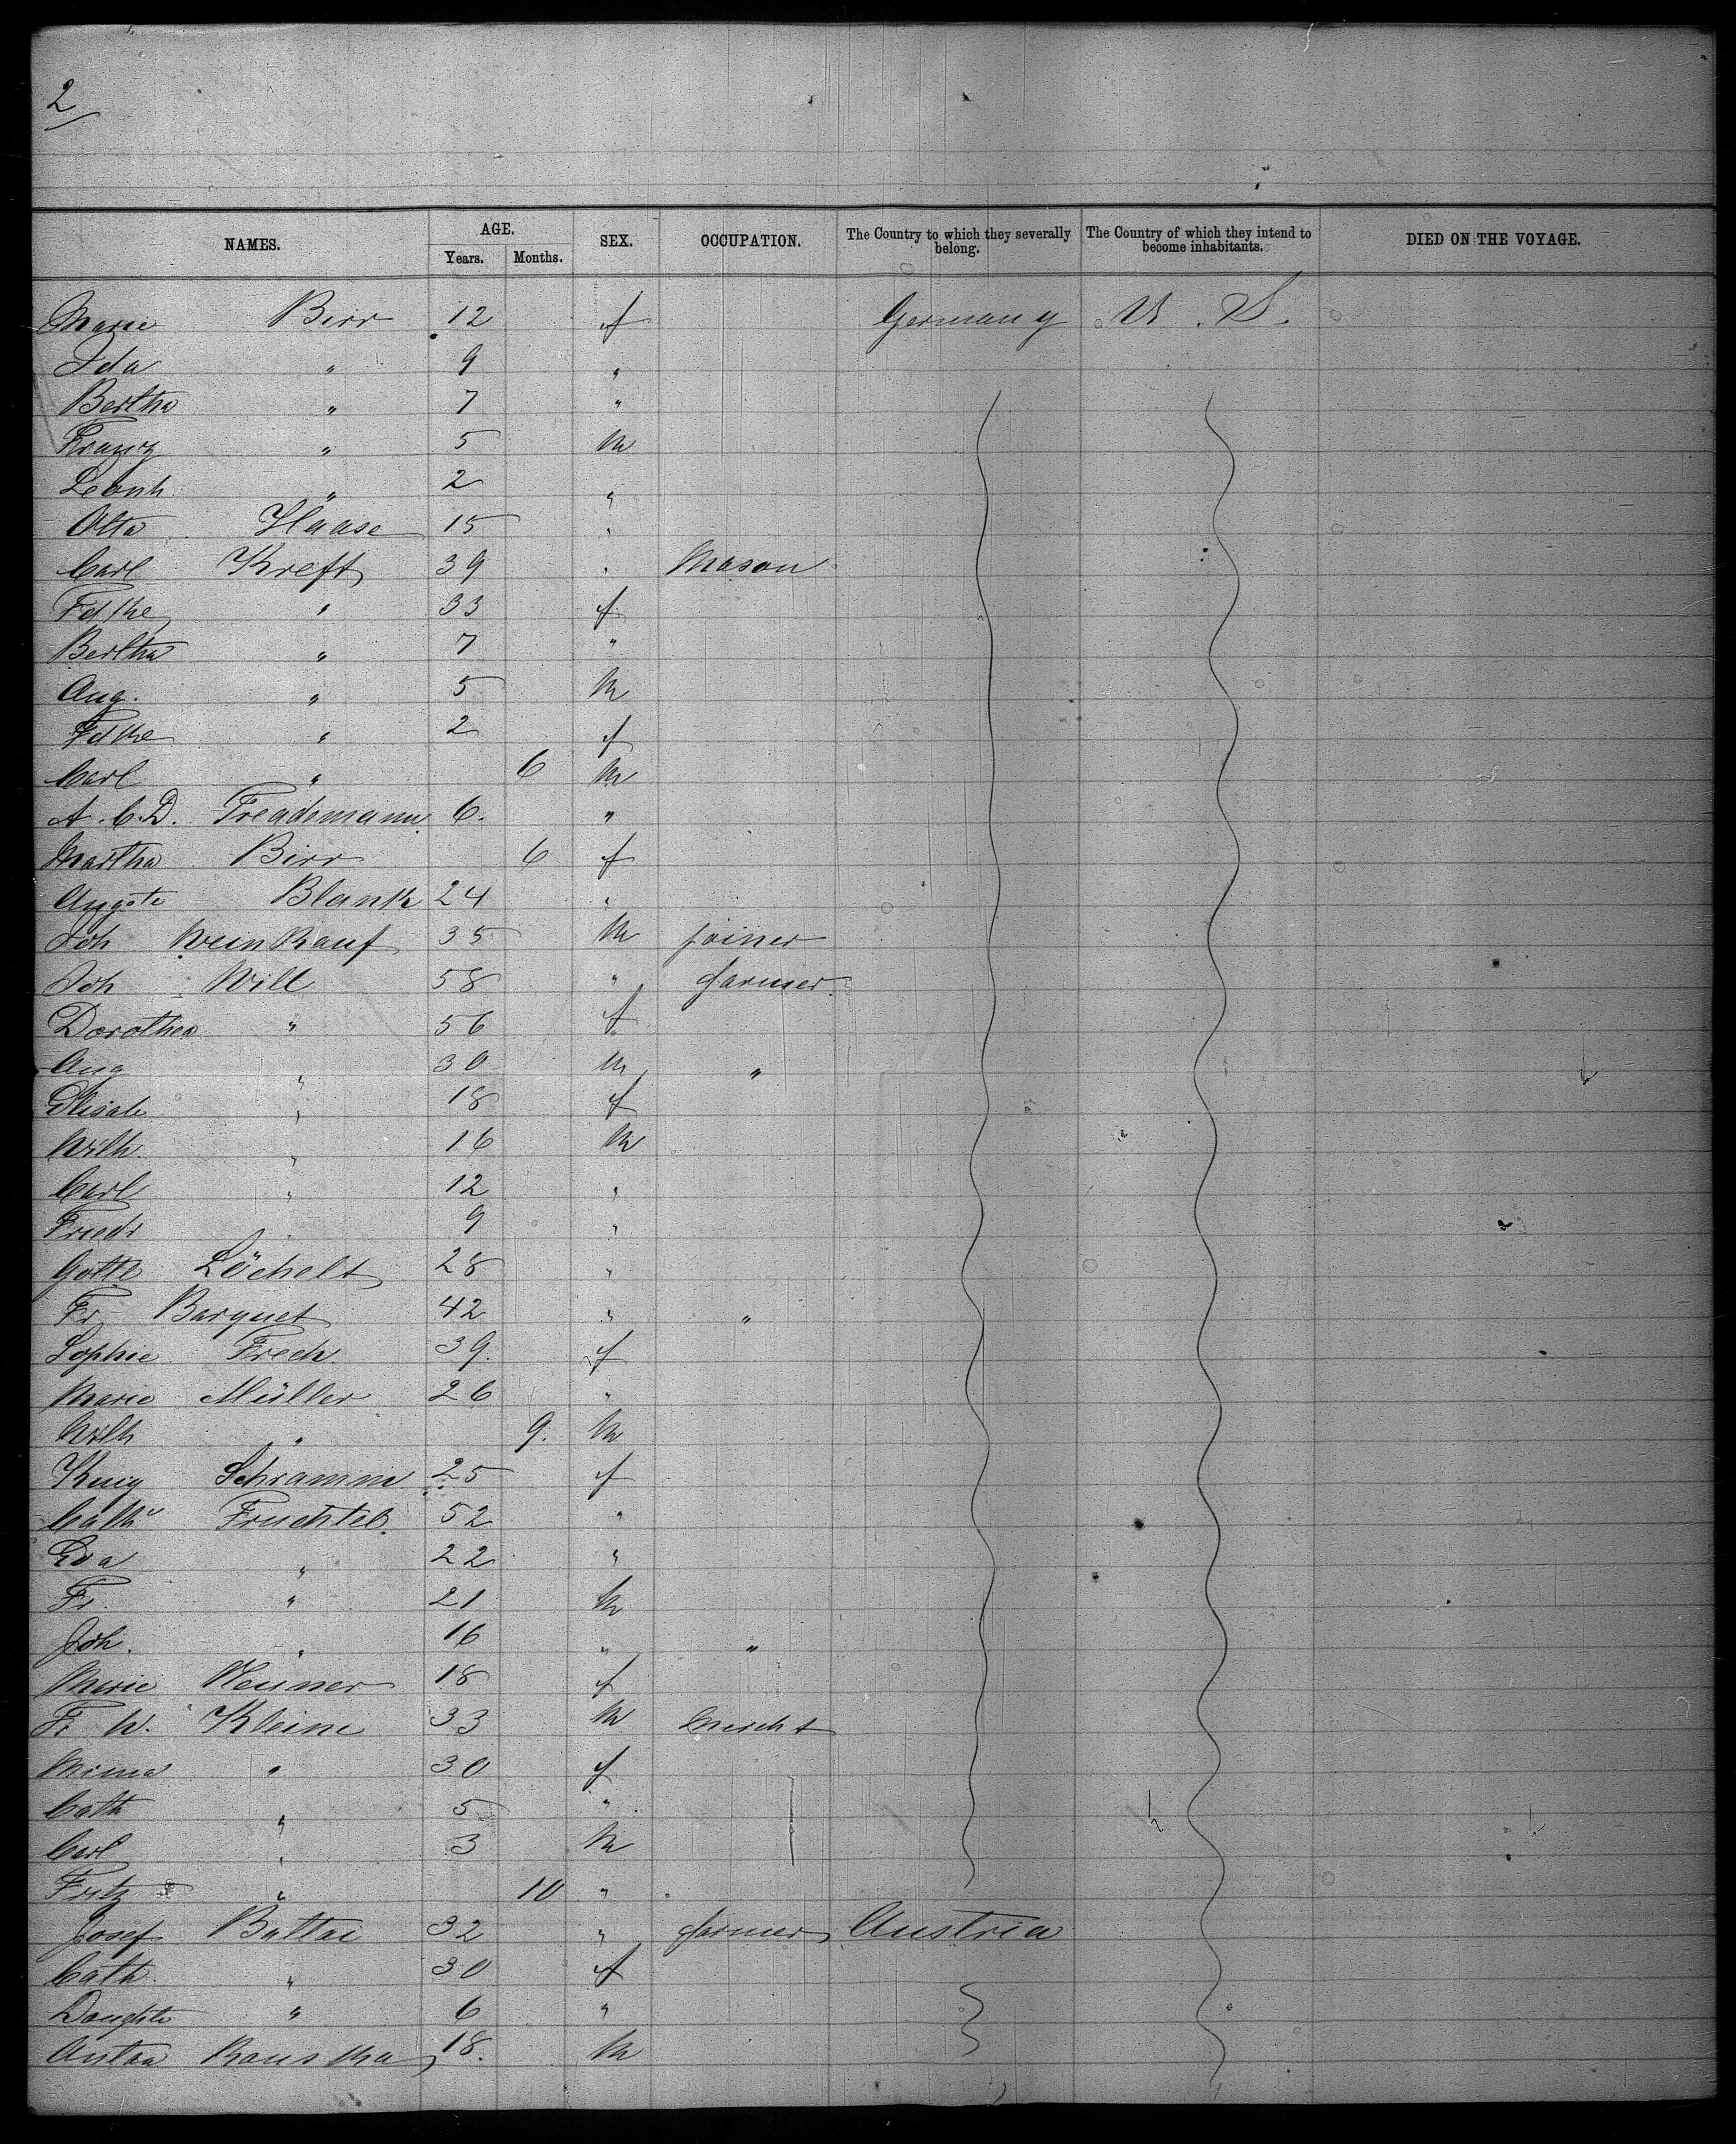 2
NAMES. AGE. Years. Months. SEX. OCCUPATION. The Country to which they severally belong. The Country of which they intend to become inhabitants. DIED ON THE VOYAGE.
Marie Birr 12 f Germany U. S.
Ida " 9 "
Bertha " 7 "
Franz " 5 m
Leonh. " 2 "
Otto Haase 15 "
Carl Kreft 39 " Mason
Fdke " 33 f
Bertha " 7 "
Aug. " 5 m
Fdke " 2 f
Carl " 6 m
A. C. D. Freademann 6. "
Martha Birr 6 f
Augste Blank 24 "
Joh Weinkauf 35 m joiner
Joh Will 58 " farmer
Dorothea " 56 f
Aug " 30 m "
Elisab " 18 f
Wilh. " 16 m
Carl " 12 "
Friedr " 9 "
Gottl Löchelt 28 "
Fr Barquet 42 " "
Sophie Frech 39. f
Marie Müller 26 "
Wilh " 9. m
Schramm 25 f
Cath Fruchtel 52 "
Eva " 22 "
Fr. " 21 m
Joh. " 16 " "
Marie 18 f
Fr W. Kleine 33 m mercht
Mina " 30 f
Cath " 5 "
Carl " 3 m
Fritz " 10 "
Josef Battai 32 " farmer Austria
Cath. " 30 f
Daughte " 6 "
Anton Kouska 18. m